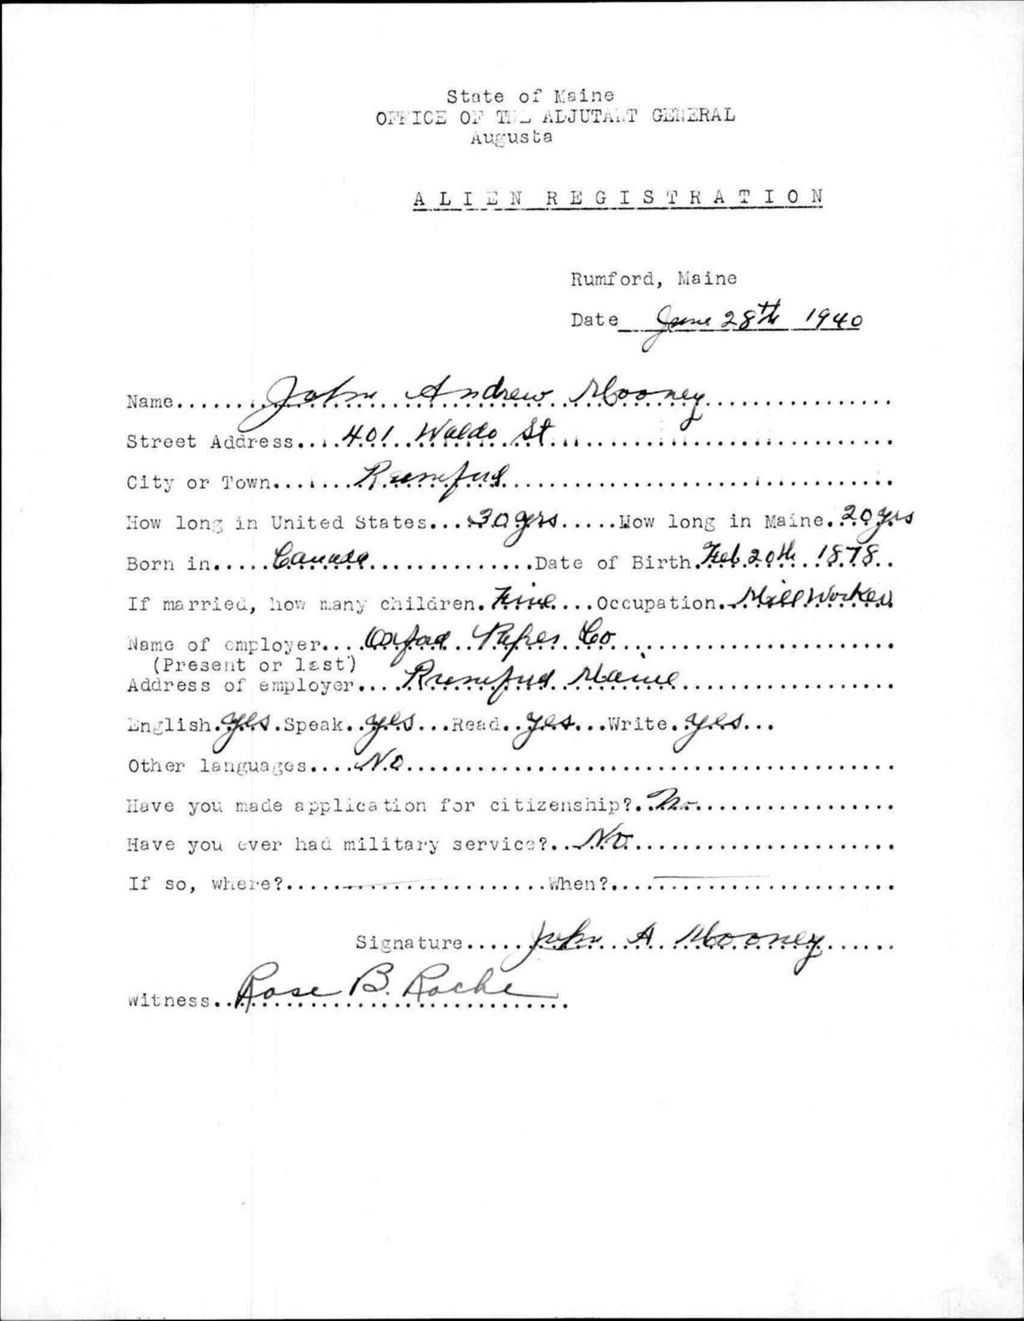 State of Maine
OFFICE OF THE ADJUTANT GENERAL
Augusta
ALIEN REGISTRATION
Rumford, Maine
Date June 28th 1940
Name.......John Andrew Mooney.................
Street Address....401 Waldo St.......................
City or Town........Rumford..............................
How long in United States...30 yrs.....How long in Maine.20 yrs
Born in.....Canada...............Date of Birth.Feb.20th.1878..
If married, how many children.Five....Occupation..Mill Worker
Name of employer....Oxford Paper Co.....................
(Present or last)
Address of employer....Rumford Maine..................
English.yes.Speak..yes...Read..yes...Write.yes...
Other languages....No....................................
Have you made application for citizenship?..No................
Have you ever had military service?...No......................
If so, where?.......................When?........................
Signature.....John A. Mooney......
Witness..Rose B. Roche